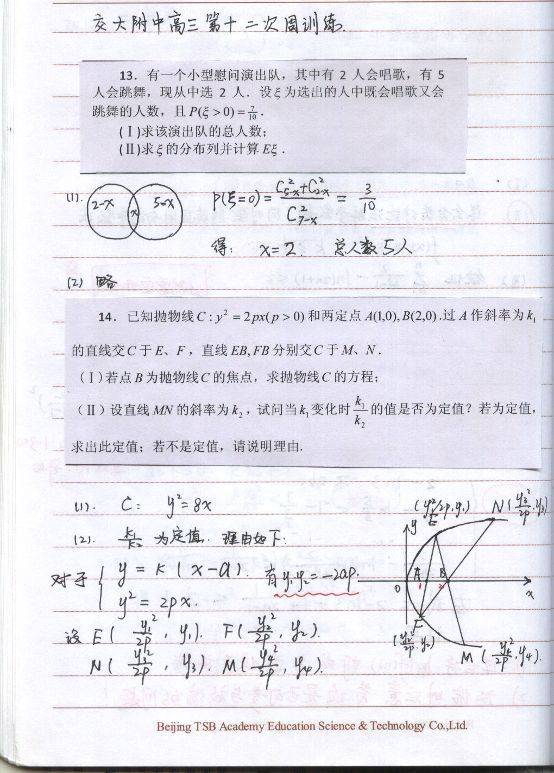 交大附中高三第十二次周训练.
13. 有一个小型慰问演出队，其中有 2 人会唱歌，有 5
人会跳舞，现从中选 2 人．设ξ为选出的人中既会唱歌又会
跳舞的人数，且 P(ξ > 0) = 7/10 .
(Ⅰ)求该演出队的总人数；
(Ⅱ)求ξ的分布列并计算 Eξ .
(1). 2-x x 5-x P(ξ=0) = (C²₅₋ₓ+C²₂₋ₓ)/C²₇₋ₓ = 3/10
得: x=2. 总人数5人
(2) 略
14. 已知抛物线 C : y² = 2px(p > 0) 和两定点 A(1,0), B(2,0) .过 A 作斜率为 k₁
的直线交 C 于 E、F ，直线 EB, FB 分别交 C 于 M、N .
(Ⅰ)若点 B 为抛物线 C 的焦点，求抛物线 C 的方程；
(Ⅱ) 设直线 MN 的斜率为 k₂ ，试问当 k₁ 变化时 k₁/k₂ 的值是否为定值？若为定值，
求出此定值；若不是定值，请说明理由.
(1). C: y²=8x
(2). k₁/k₂ 为定值. 理由如下:
对于 { y = k(x-a). 有 y₁y₂=-2ap.
y² = 2px.
设 E( y₁²/2p , y₁). F( y₂²/2p , y₂).
N( y₃²/2p , y₃). M( y₄²/2p , y₄).
(y₁²/2p, y₁) N( y₃²/2p, y₃)
y E
O A B x
F
(y₂²/2p, y₂) M( y₄²/2p, y₄).
Beijing TSB Academy Education Science & Technology Co.,Ltd.